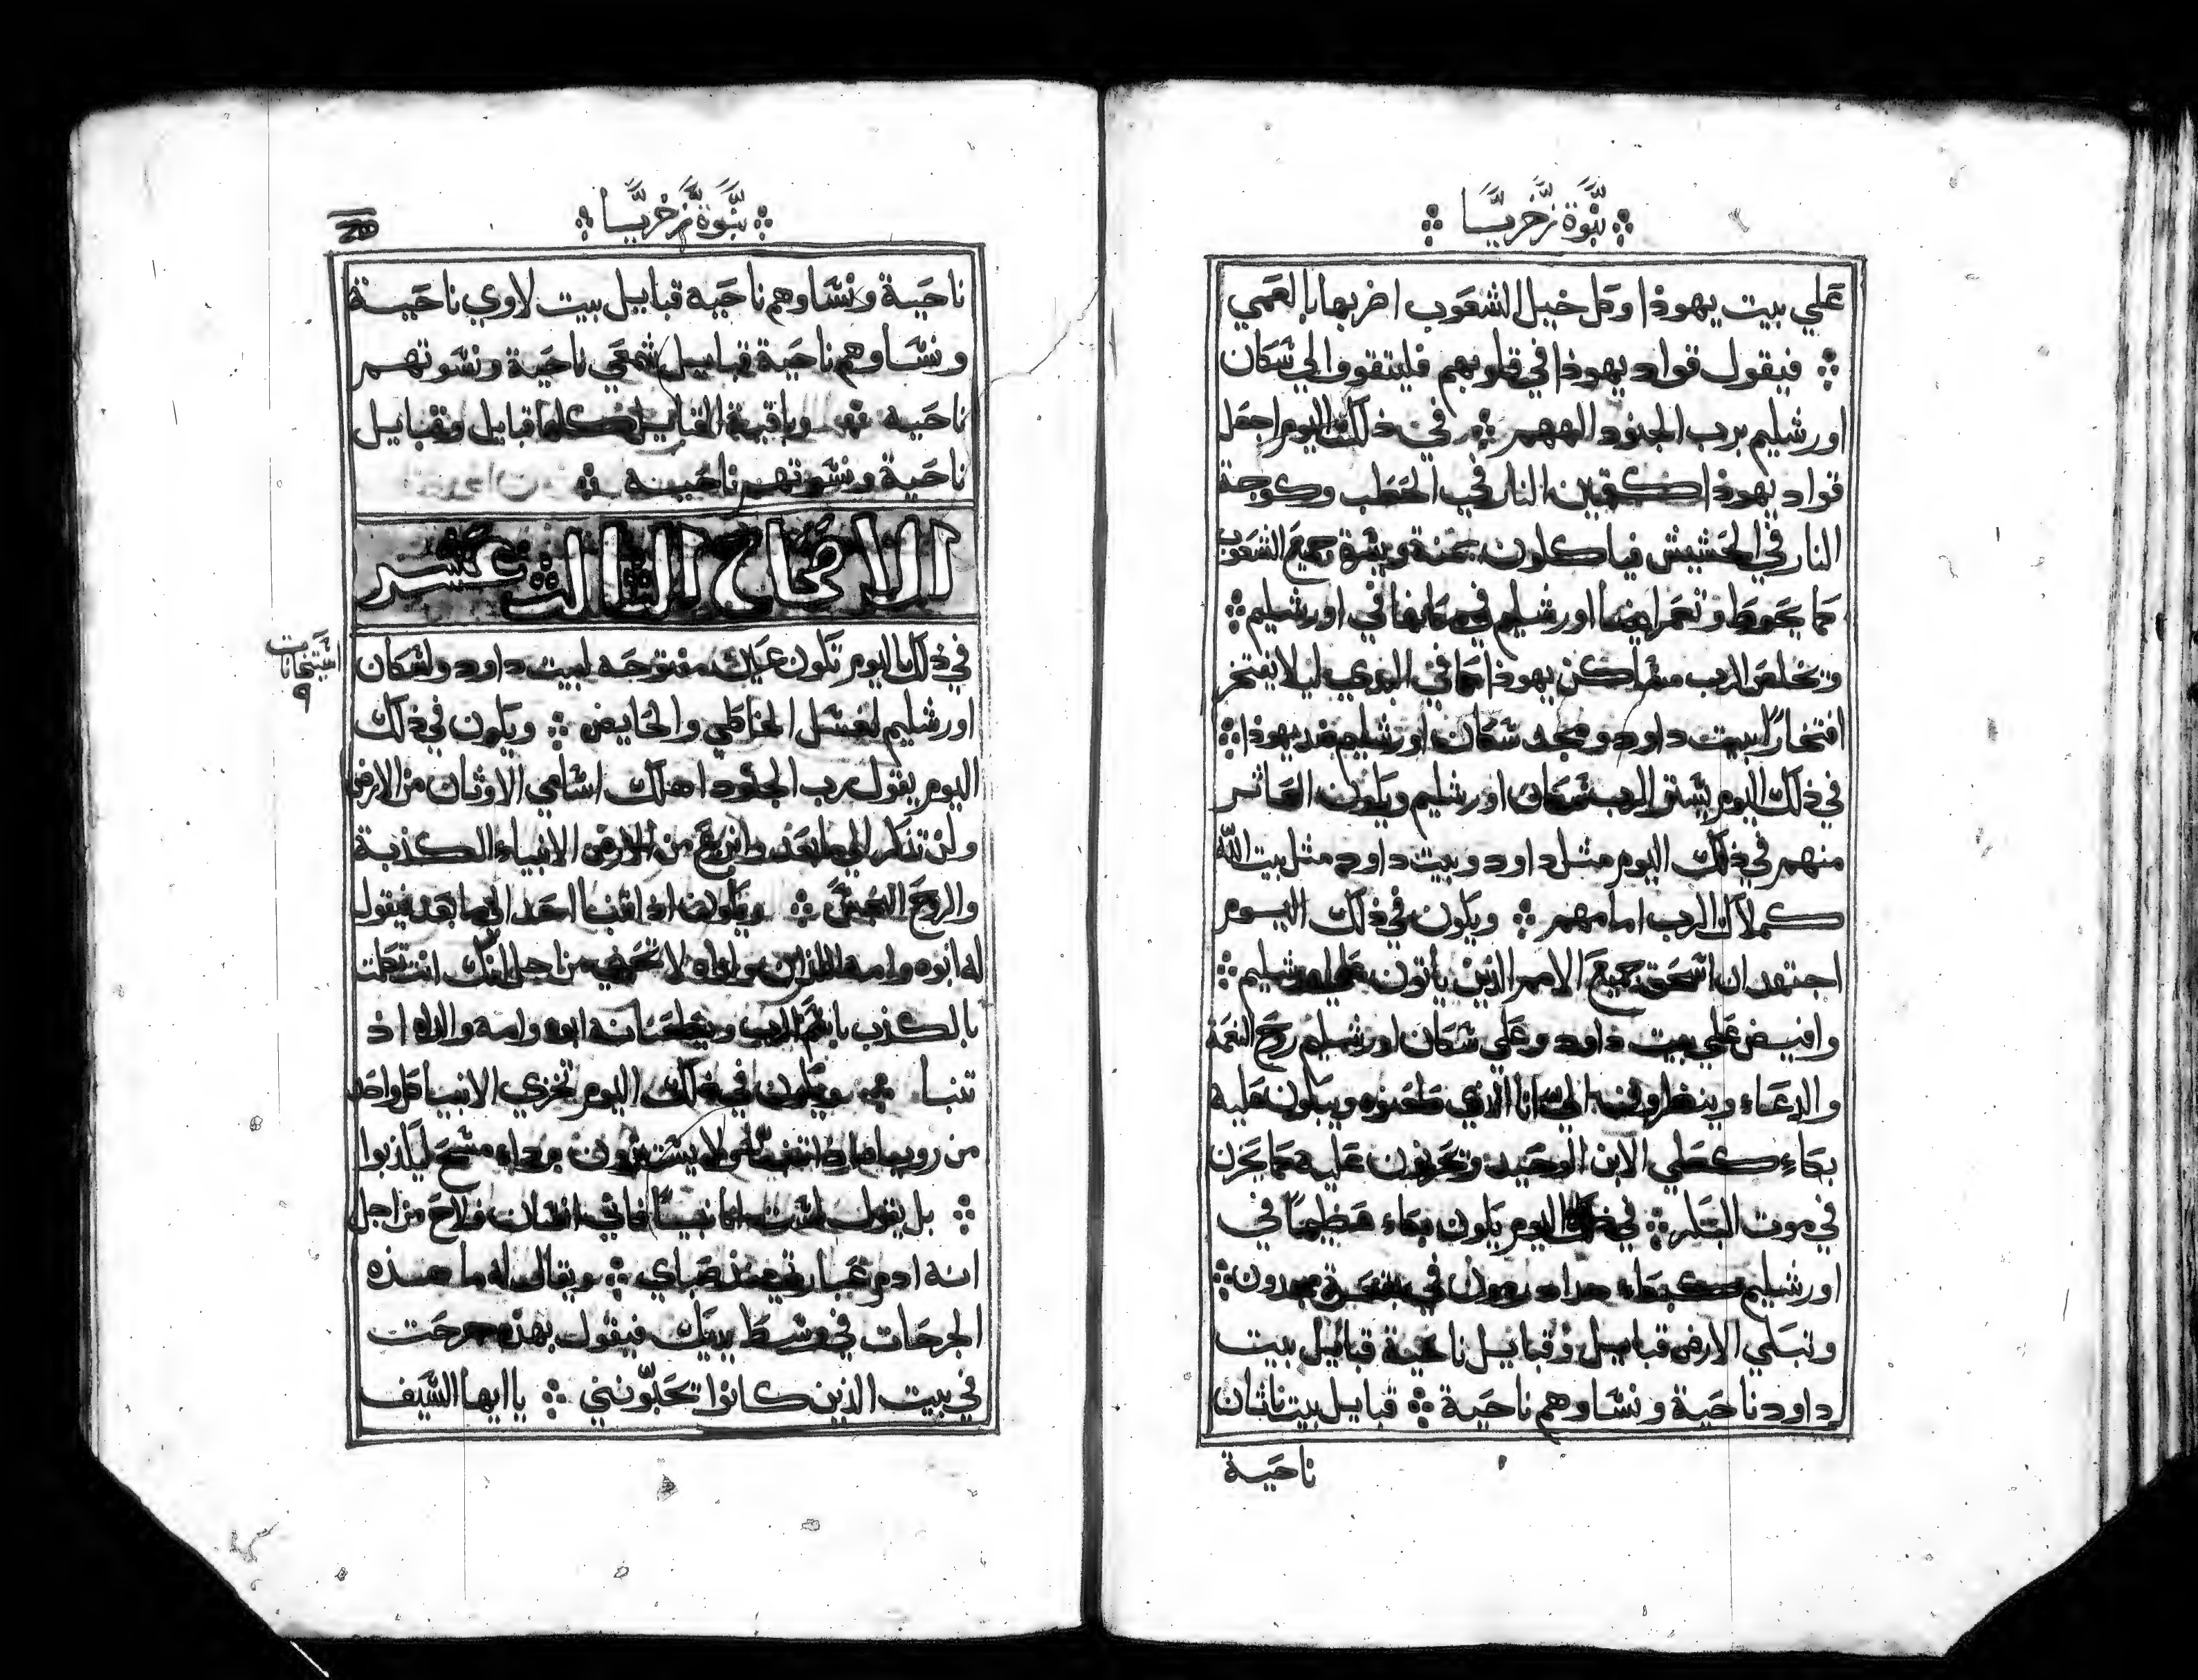 نبوة زخريا
علي بيت يهوذا وكل خيل الشعوب اضربها بالعمي
فيقول قواد يهوذا في قلوبهم فليتقووا لي سكان
اورشليم برب الجنود الههم في ذلك اليوم اجعل
قواد يهوذا كقمين النار في الحطب وكوجة
النار في الحشيش فياكلون يمنة ويسرة جميع الشعوب
كما يحوط وتعمر ايضا اورشليم في مكانها في اورشليم
ويخلص الرب مساكن يهوذا كما في البدي ليلا يفتخر
افتخارا بيت داود ومجد سكان اورشليم ضد يهوذا
في ذلك اليوم يستر الرب سكان اورشليم ويكون العاثر
منهم في ذلك اليوم مثل داود وبيت داود مثل بيت الله
كملاك الرب امامهم ويكون في ذلك اليوم
اجتهد ان اسحق جميع الامم الذين ياتون علي اورشليم
وافيض علي بيت داود وعلي سكان اورشليم روح النعمة
والدعاء وينظرون الي انا الذي طعنوه ويبكون عليه
بكاء كعلي الابن الوحيد ويحزنون عليه كما يحزن
في موت البكر في ذلك اليوم يكون بكاء عظيما في
اورشليم كبكاء هدادرمون في بقعة مجدون
وتبكي الارض قبايل وقبايل ناحية قبايل بيت
داود ناحية ونساوهم ناحية قبايل بيت ناثان
ناحية
نبوة زخريا
ناحية ونساوهم ناحية قبايل بيت لاوي ناحية
ونساوهم ناحية قبايل شمعي ناحية ونسوتهم
ناحية وباقية القبايل كلها قبايل وقبايل
ناحية ونسوتهم ناحية
الاصحاح الثالث عشر
في ذلك اليوم تكون عين مفتوحة لبيت داود ولسكان
اورشليم لغسل الخاطي والحايض ويكون في ذلك
اليوم يقول رب الجنود اهلك اسامي الاوثان من الارض
ولن تذكر الي ما بعد وانزع من الارض الانبياء الكذبة
والروح النجس ويكون اذا تنبا احد الي ما بعد فيقول
له ابوه وامه اللذان ولداه لا تحيي من اجل انك انت تكلمت
بالكذب باسم الرب ويطعنانه ابوه وامه والداه اذ
تنبا ويكون في ذلك اليوم تخزي الانبيا كل واحد
من روياه اذا تنبا ولا يستترون برداء مسح ليكذبوا
بل يقول لست انا نبيا فاني انسان فلاح من اجل
انه ادم عبارتي منذ صباي ويقال له ما هذه
الجرحات في وسط يديك فيقول بهذه جرحت
في بيت الذين كانوا يحبونني يا ايها السيف
استخانات
٩